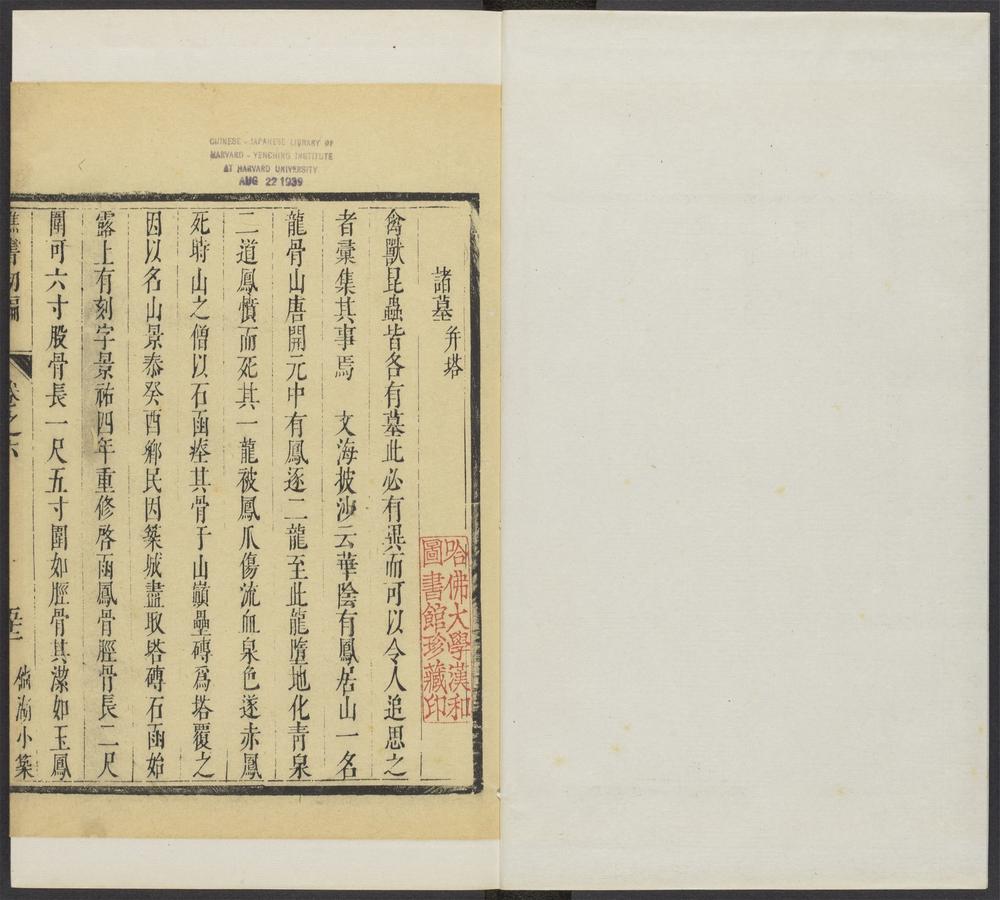 CHINESE - JAPANESE LIBRARY OF
HARVARD - YENCHING INSTITUTE
AT HARVARD UNIVERSITY
AUG 22 1939
諸墓 弁塔
禽獸昆蟲皆各有墓此必有異而可以令人追思之
者彚集其事焉 文海披沙云華陰有鳳居山一名
龍骨山唐開元中有鳳逐二龍至此龍墮地化靑泉
二道鳳憤而死其一龍被鳳爪傷流血泉色遂赤鳳
死時山之僧以石函瘞其骨于山巓壘磚爲塔覆之
因以名山景泰癸酉鄉民因築城盡取塔磚石函始
露上有刻字景祐四年重修啓函鳳骨脛骨長二尺
圍可六寸股骨長一尺五寸圍如脛骨其潔如玉鳳
樵書初編 卷之六 倘湖小築
哈佛大學漢和
圖書館珍藏印